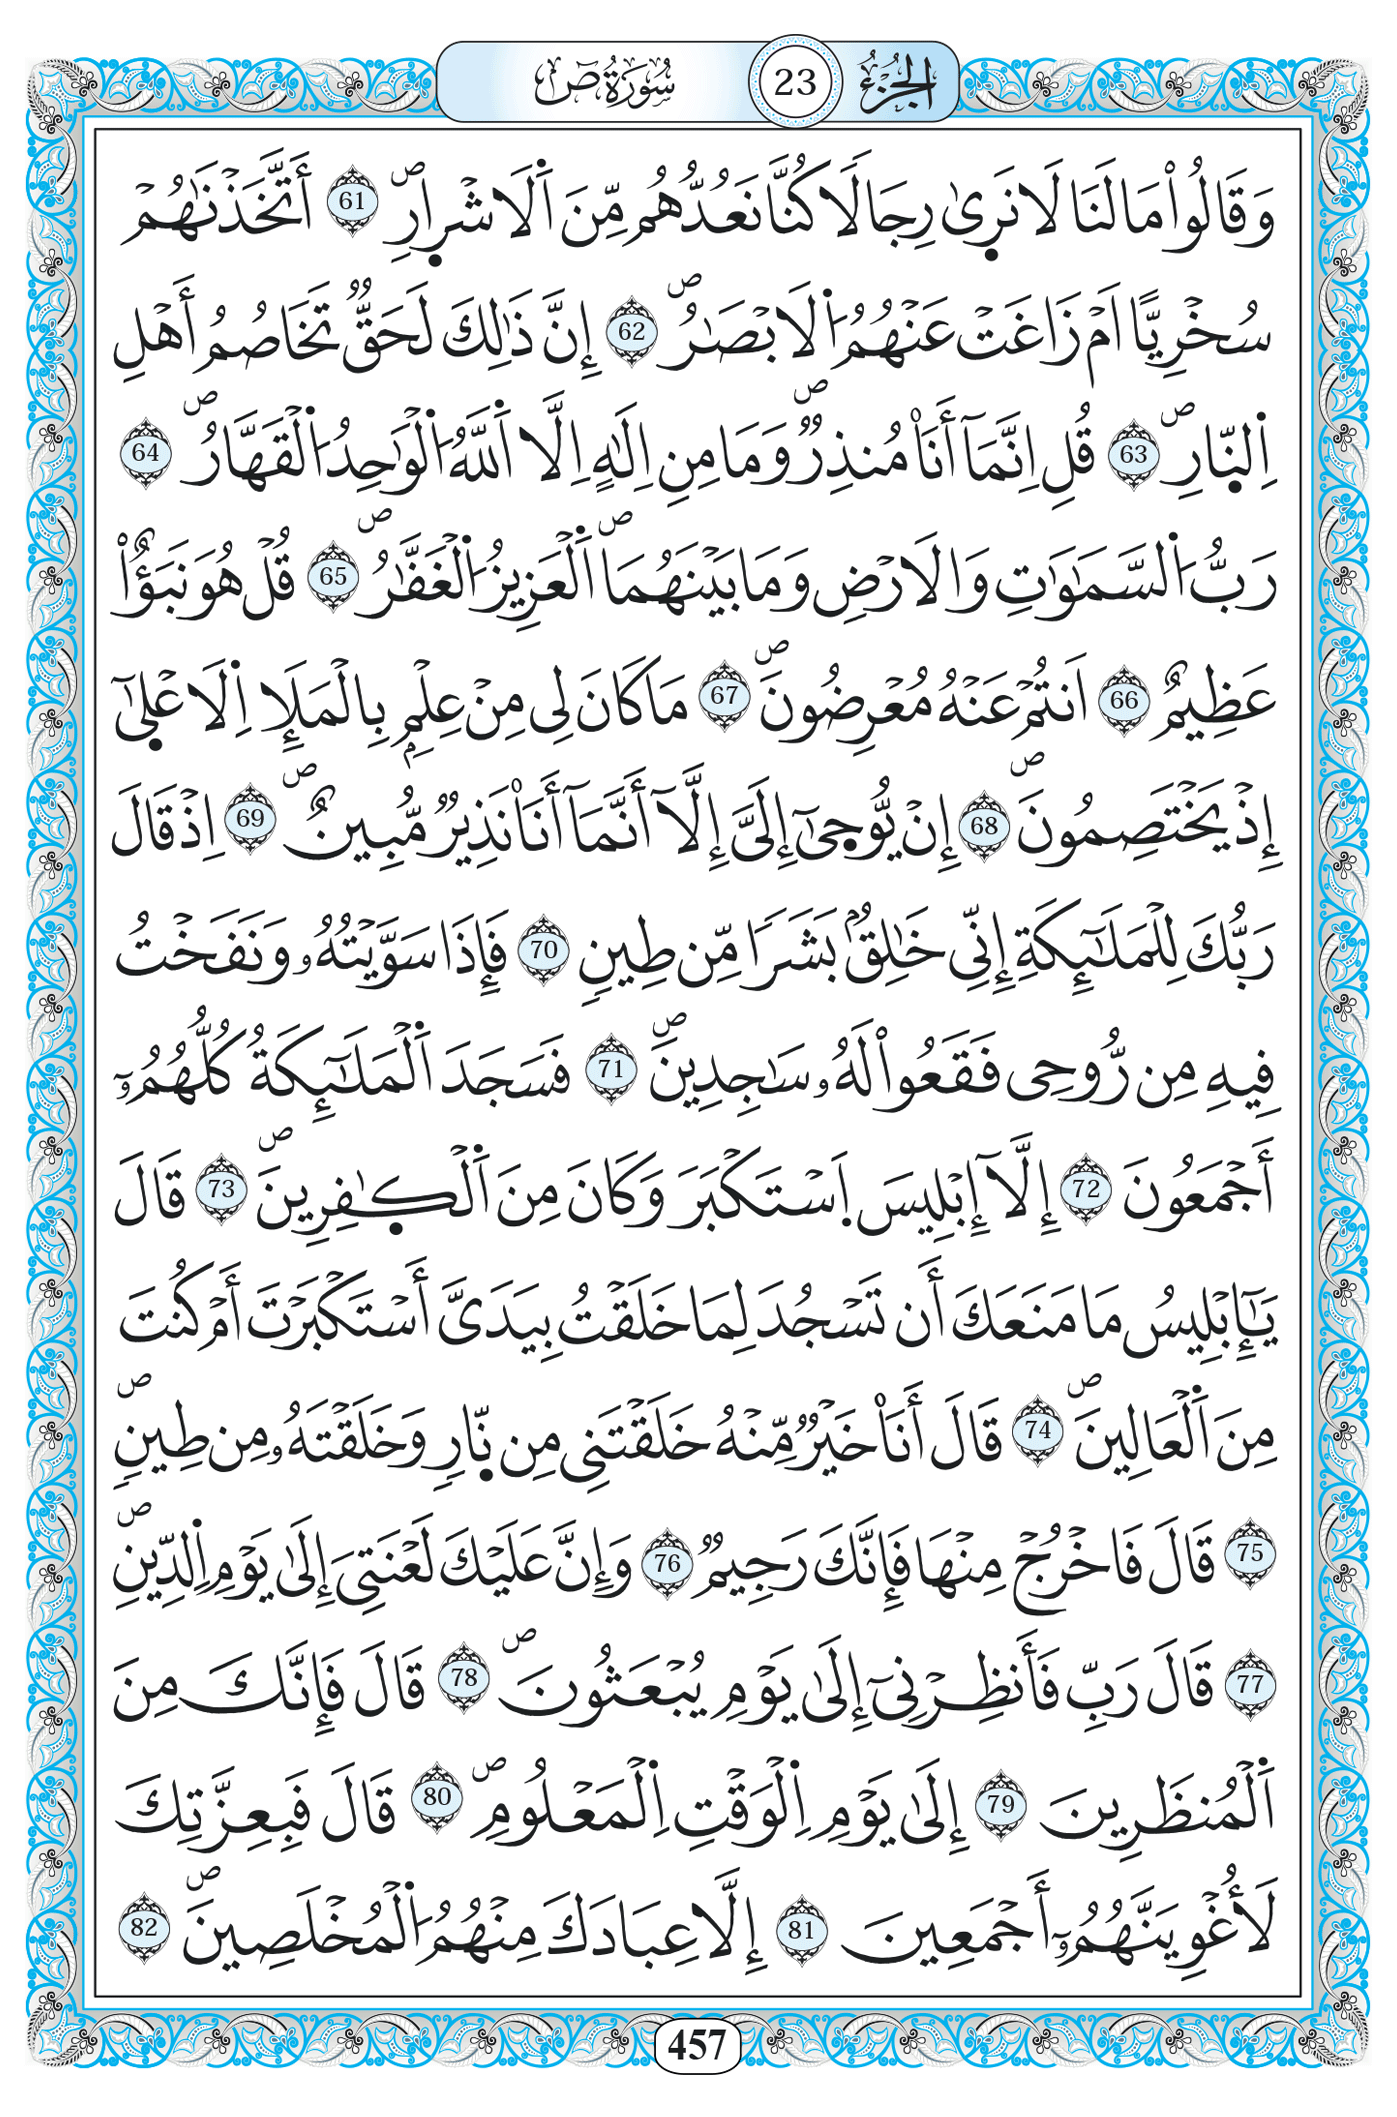 الجزء 23 سورة ص
وَقَالُواْ مَا لَنَا لَا نَرۭىٰ رِجَالاٗ كُنَّا نَعُدُّهُم مِّنَ اَ۬لَاشْرۭارِۖ 61 أَتَّخَذْنَٰهُمْ
سُخْرِيّاً اَمْ زَاغَتْ عَنْهُمُ اُ۬لَابْصَٰرُۖ 62 إِنَّ ذَٰلِكَ لَحَقّٞ تَخَاصُمُ أَهْلِ
اِ۬لنّ۪ارِۖ 63 قُلِ اِنَّمَآ أَنَا۠ مُنذِرٞۖ وَمَا مِنِ اِلَٰهٍ اِلَّا اَ۬للَّهُ اُ۬لْوَٰحِدُ اُ۬لْقَهَّارُۖ 64
رَبُّ اُ۬لسَّمَٰوَٰتِ وَالَارْضِ وَمَا بَيْنَهُمَاۖ اَ۬لْعَزِيزُ اُ۬لْغَفَّٰرُۖ 65 قُلْ هُوَ نَبَؤٌاْ
عَظِيمٌ 66 اَنتُمْ عَنْهُ مُعْرِضُونَۖ 67 مَا كَانَ لِي مِنْ عِلْمِۢ بِالْمَلَإِ اِ۬لَاعْل۪ىٰٓ
إِذْ يَخْتَصِمُونَۖ 68 إِنْ يُّوح۪ىٰٓ إِلَيَّ إِلَّآ أَنَّمَآ أَنَا۠ نَذِيرٞ مُّبِينٌۖ 69 اِذْ قَالَ
رَبُّكَ لِلْمَلَٰٓئِكَةِ إِنِّي خَٰلِقُۢ بَشَراٗ مِّن طِينٖ 70 فَإِذَا سَوَّيْتُهُۥ وَنَفَخْتُ
فِيهِ مِن رُّوحِي فَقَعُواْ لَهُۥ سَٰجِدِينَۖ 71 فَسَجَدَ اَ۬لْمَلَٰٓئِكَةُ كُلُّهُمُۥٓ
أَجْمَعُونَ 72 إِلَّآ إِبْلِيسَ اَ۪سْتَكْبَرَ وَكَانَ مِنَ اَ۬لْكٰ۪فِرِينَۖ 73 قَالَ
يَٰٓإِبْلِيسُ مَا مَنَعَكَ أَن تَسْجُدَ لِمَا خَلَقْتُ بِيَدَيَّ أَسْتَكْبَرْتَ أَمْ كُنتَ
مِنَ اَ۬لْعَالِينَۖ 74 قَالَ أَنَا۠ خَيْرٞ مِّنْهُ خَلَقْتَنِي مِن نّ۪ارٖ وَخَلَقْتَهُۥ مِن طِينٖۖ
75 قَالَ فَاخْرُجْ مِنْهَا فَإِنَّكَ رَجِيمٞ 76 وَإِنَّ عَلَيْكَ لَعْنَتِيَ إِلَىٰ يَوْمِ اِ۬لدِّينِۖ
77 قَالَ رَبِّ فَأَنظِرْنِيٓ إِلَىٰ يَوْمِ يُبْعَثُونَۖ 78 قَالَ فَإِنَّكَ مِنَ
اَ۬لْمُنظَرِينَ 79 إِلَىٰ يَوْمِ اِ۬لْوَقْتِ اِ۬لْمَعْلُومِۖ 80 قَالَ فَبِعِزَّتِكَ
لَأُغْوِيَنَّهُمُۥٓ أَجْمَعِينَ 81 إِلَّا عِبَادَكَ مِنْهُمُ اُ۬لْمُخْلَصِينَۖ 82
457